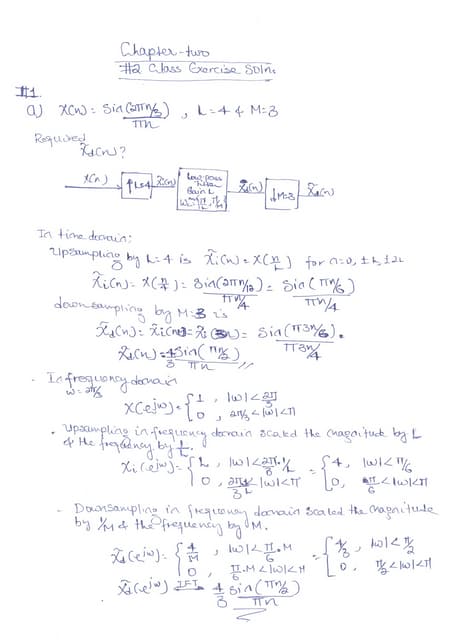 Chapter-two
#2 Class Exercise Soln.
#1
a) x(n) = Sin(2πn/3) / πn , L=4 & M=3
Required
x̃d(n)?
x(n) ↑L=4 x̃i(n) Low-pass filter Gain L x̃i(n) ↓M=3 x̃d(n)
In time domain;
Upsampling by L=4 is x̃i(n) = x(n/L) for n=0, ±L, ±2L
x̃i(n) = x(n/4) = Sin(2πn/12) / πn/4 = Sin(πn/6) / πn/4
downsampling by M=3 is
x̃d(n) = x̃i(3n) = Sin(π3n/6) / π3n/4 .
x̃d(n) = 4/3 Sin(πn/2) / πn //
- In frequency domain
ω = 2π/3
X(e^jω) = { 1 , |ω|<2π/3
0 , 2π/3<|ω|<π
• Upsampling in frequency domain scaled the magnitude by L
& the frequency by 1/L.
Xi(e^jω) = { L , |ω|<2π/3·1/L = { 4 , |ω|<π/6
0 , 2π/3·1/L<|ω|<π 0 , π/6<|ω|<π
- Downsampling in frequency domain scaled the magnitude
by 1/M & the frequency by M.
X̃d(e^jω) = { 4/M , |ω|<π/6·M = { 4/3 , |ω|<π/2
0 , π/6·M<|ω|<π 0 , π/2<|ω|<π
X̃d(e^jω) IFT 4/3 Sin(πn/2) / πn